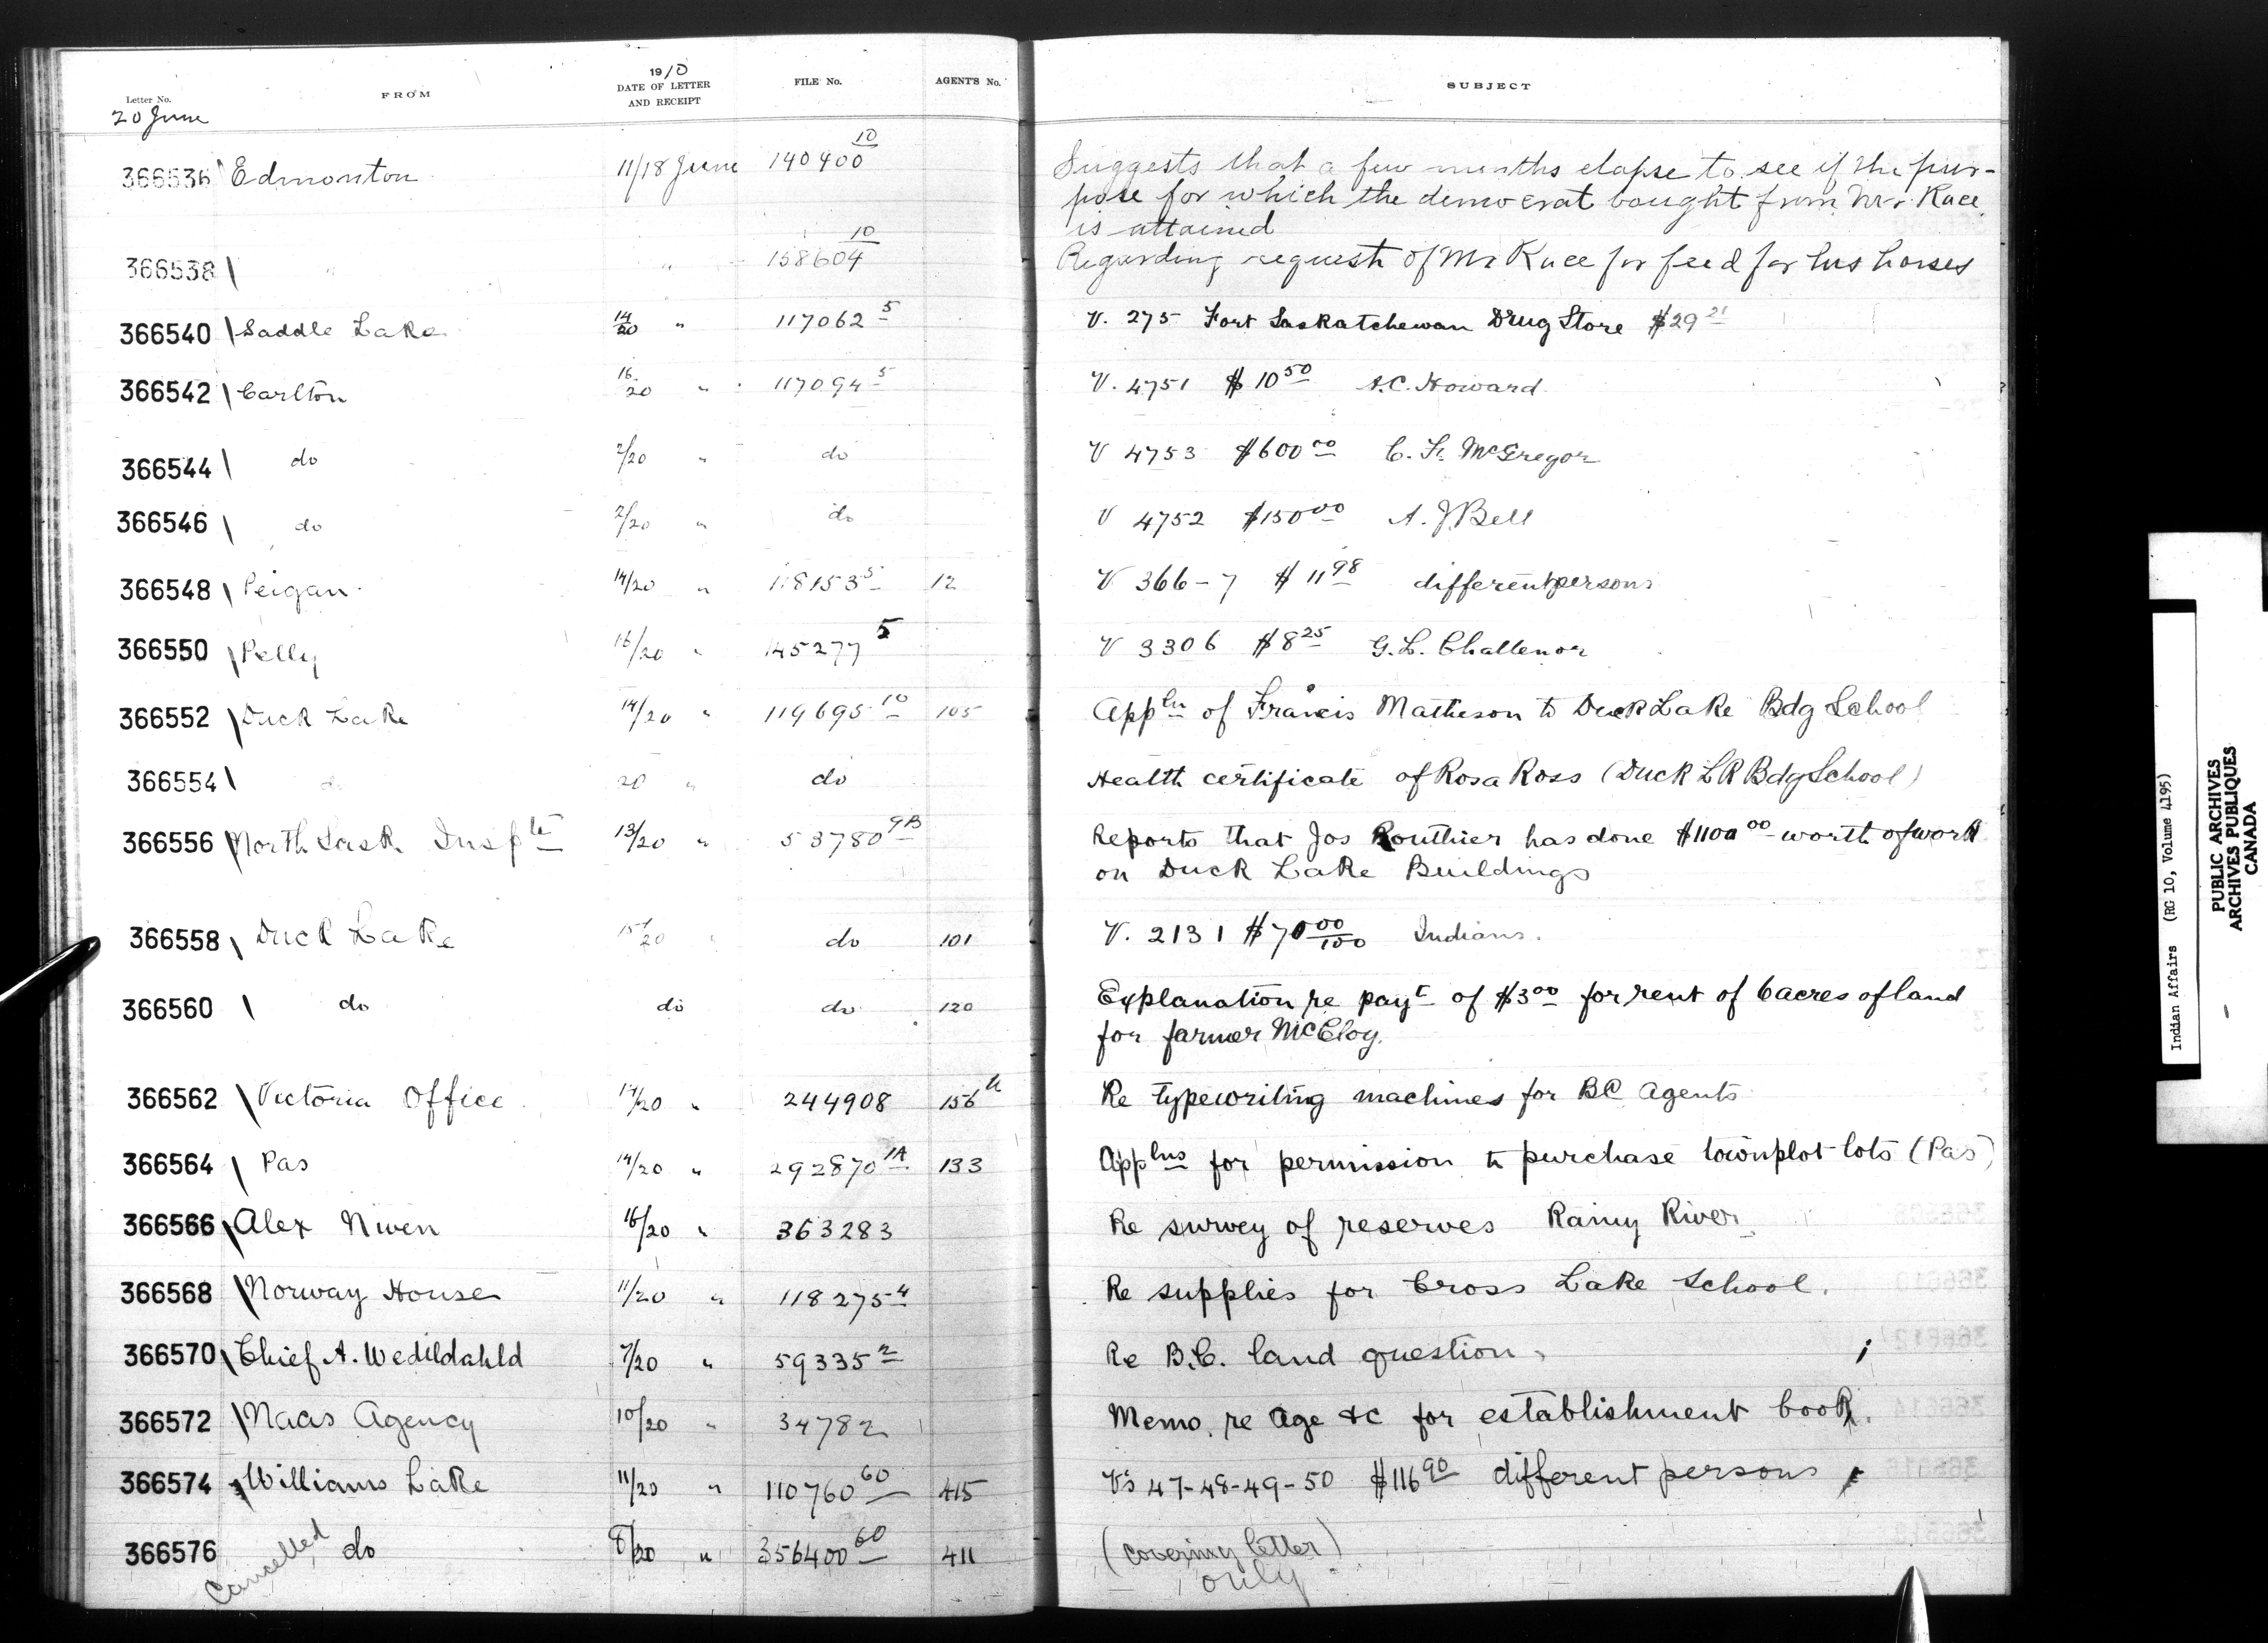 Letter No. FROM 1910 DATE OF LETTER AND RECEIPT FILE No. AGENT'S No. SUBJECT
20 June
366536 Edmonton 11/18 June 140400 10 Suggests that a few months elapse to see if the pur-
pose for which the democrat bought from Mr. Race
is attained
366538 " " 158604 10 Regarding request of Mr Race for feed for his horses
366540 Saddle Lake 14/20 " 117062 5 V. 275 Fort Saskatchewan Drug Store $29 21
366542 Carlton 16/20 " 117094 5 V. 4751 $10 50 A.C. Howard
366544 do 2/20 " do V 4753 $600 00 C. F. McGregor
366546 do 2/20 " do V 4752 $150 00 A. J Bell
366548 Peigan 14/20 " 118153 5 12 V 366-7 $11 98 different persons
366550 Pelly 16/20 " 145277 5 V 3306 $8 25 G. L. Challenor
366552 Duck Lake 14/20 " 119695 10 105 Appln of Francis Matheson to Duck Lake Bdg School
366554 do 20 " do Health certificate of Rosa Ross (Duck LK Bdg School)
366556 North Sask Inspte 13/20 " 53780 9B Reports that Jos Routhier has done $1100 00 worth of work
on Duck Lake Buildings
366558 Duck Lake 15/20 " do 101 V. 2131 $70 00/100 Indians.
366560 do do do 120 Explanation re payt of $3 00 for rent of 6 acres of land
for farmer McCloy.
366562 Victoria Office 14/20 " 244908 156 Re typewriting machines for BC Agents
366564 Pas 14/20 " 292870 1A 133 Applns for permission to purchase townplot lots (Pas)
366566 Alex Niven 16/20 " 363283 Re survey of reserves Rainy River.
366568 Norway House 11/20 " 118275 4 Re supplies for Cross Lake School.
366570 Chief A. Wedildahld 7/20 " 59335 2 Re B.C. land question.
366572 Naas Agency 10/20 " 34782 Memo. re Age &c for establishment book.
366574 Williams Lake 11/20 " 110760 60 415 Vs 47-48-49-50 $116 90 different persons
366576 Cancelled do 8/20 " 356400 60 411 (covering letter)
only
Indian Affairs (RG 10, Volume 4195)
PUBLIC ARCHIVES
ARCHIVES PUBLIQUES
CANADA